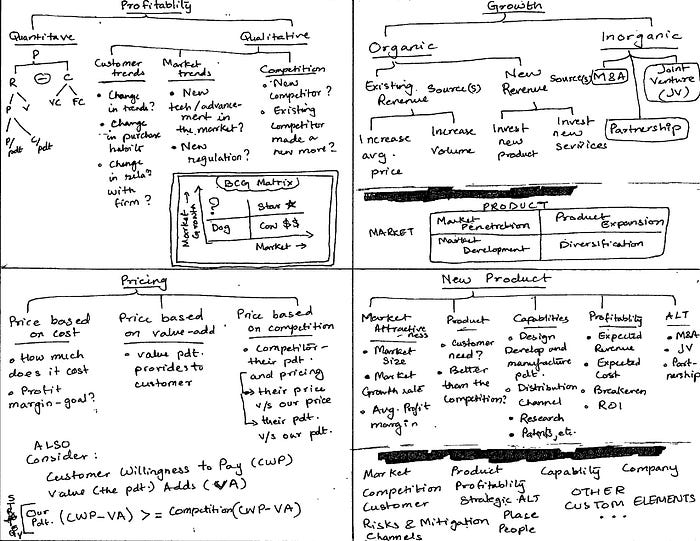 Profitablity
Quantitave
P
R
(-)
C
P
V
VC
FC
P/pdt
C/pdt
Qualitative
Customer
trends
• Change
in trends?
• Change
in purchase
habits
• Change
in rela
with
firm?
Market
trends
• New
tech/advance-
ment in
the market?
• New
regulation?
Competition
• New
competitor?
• Existing
competitor
made a
new move?
BCG Matrix
Market
Growth
?
Star
Dog
Cow $$
Market
Growth
Organic
Existing
Revenue
Source(s)
Increase
avg.
price
Increase
Volume
New
Revenue
Source(s)
Invest
new
product
Invest
new
services
Inorganic
M&A
Joint
Venture
(JV)
Partnership
PRODUCT
MARKET
Market
Penetration
Product
Expansion
Market
Development
Diversification
Pricing
Price based
on cost
• How much
does it cost
• Profit
margin-goal?
Price based
on value-add
• value pdt.
provides to
customer
Price based
on competition
• Competitor-
their pdt.
and pricing
their price
v/s our price
their pdt.
v/s our pdt.
ALSO
Consider:
Customer Willingness to Pay (CWP)
Value (the pdt.) Adds (VA)
Our
Pdt. (CWP-VA) >= Competition (CWP-VA)
New Product
Market
Attractive
ness
• Market
Size
• Market
Growth rate
• Avg. Profit
margin
Product
• Customer
need?
• Better
than the
competition?
Capablities
• Design
Develop and
manufacture
pdt.
• Distribution
Channel
• Research
• Patents, etc.
Profitablity
• Expected
Revenue
• Expected
Cost
• Breakeven
• ROI
ALT
• M&A
• JV
• Part-
nership
Market
Product
Capablity
Company
Competition
Profitablity
OTHER
Customer
Strategic ALT
CUSTOM ELEMENTS
Risks & Mitigation
Place
...
Channels
People